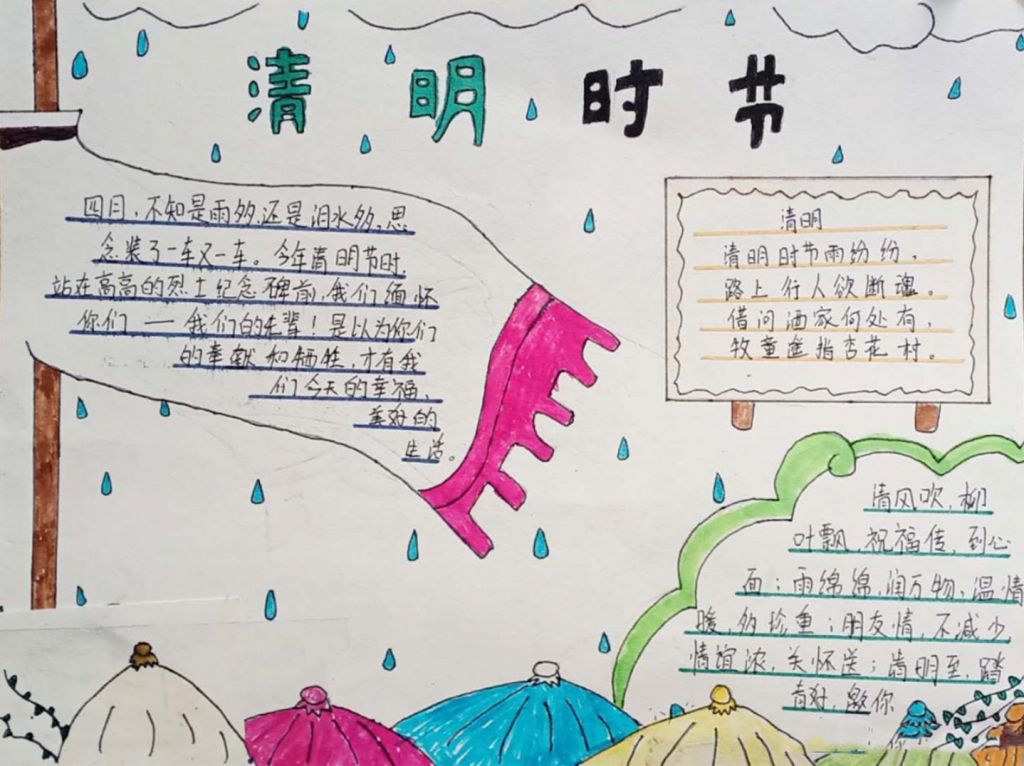 清明时节
四月,不知是雨多,还是泪水多,思
念装了一车又一车。今年清明节时
站在高高的烈士纪念碑前,我们缅怀
你们——我们的先辈!是以为你们
的奉献和牺牲,才有我
们今天的幸福,
美好的
生活。
清明
清明时节雨纷纷,
路上行人欲断魂。
借问酒家何处有,
牧童遥指杏花村。
清风吹,柳
叶飘,祝福传,到心
面;雨绵绵,润万物,温情
暖,多珍重;朋友情,不减少
情谊浓,关怀送;清明至,踏
青好,邀你